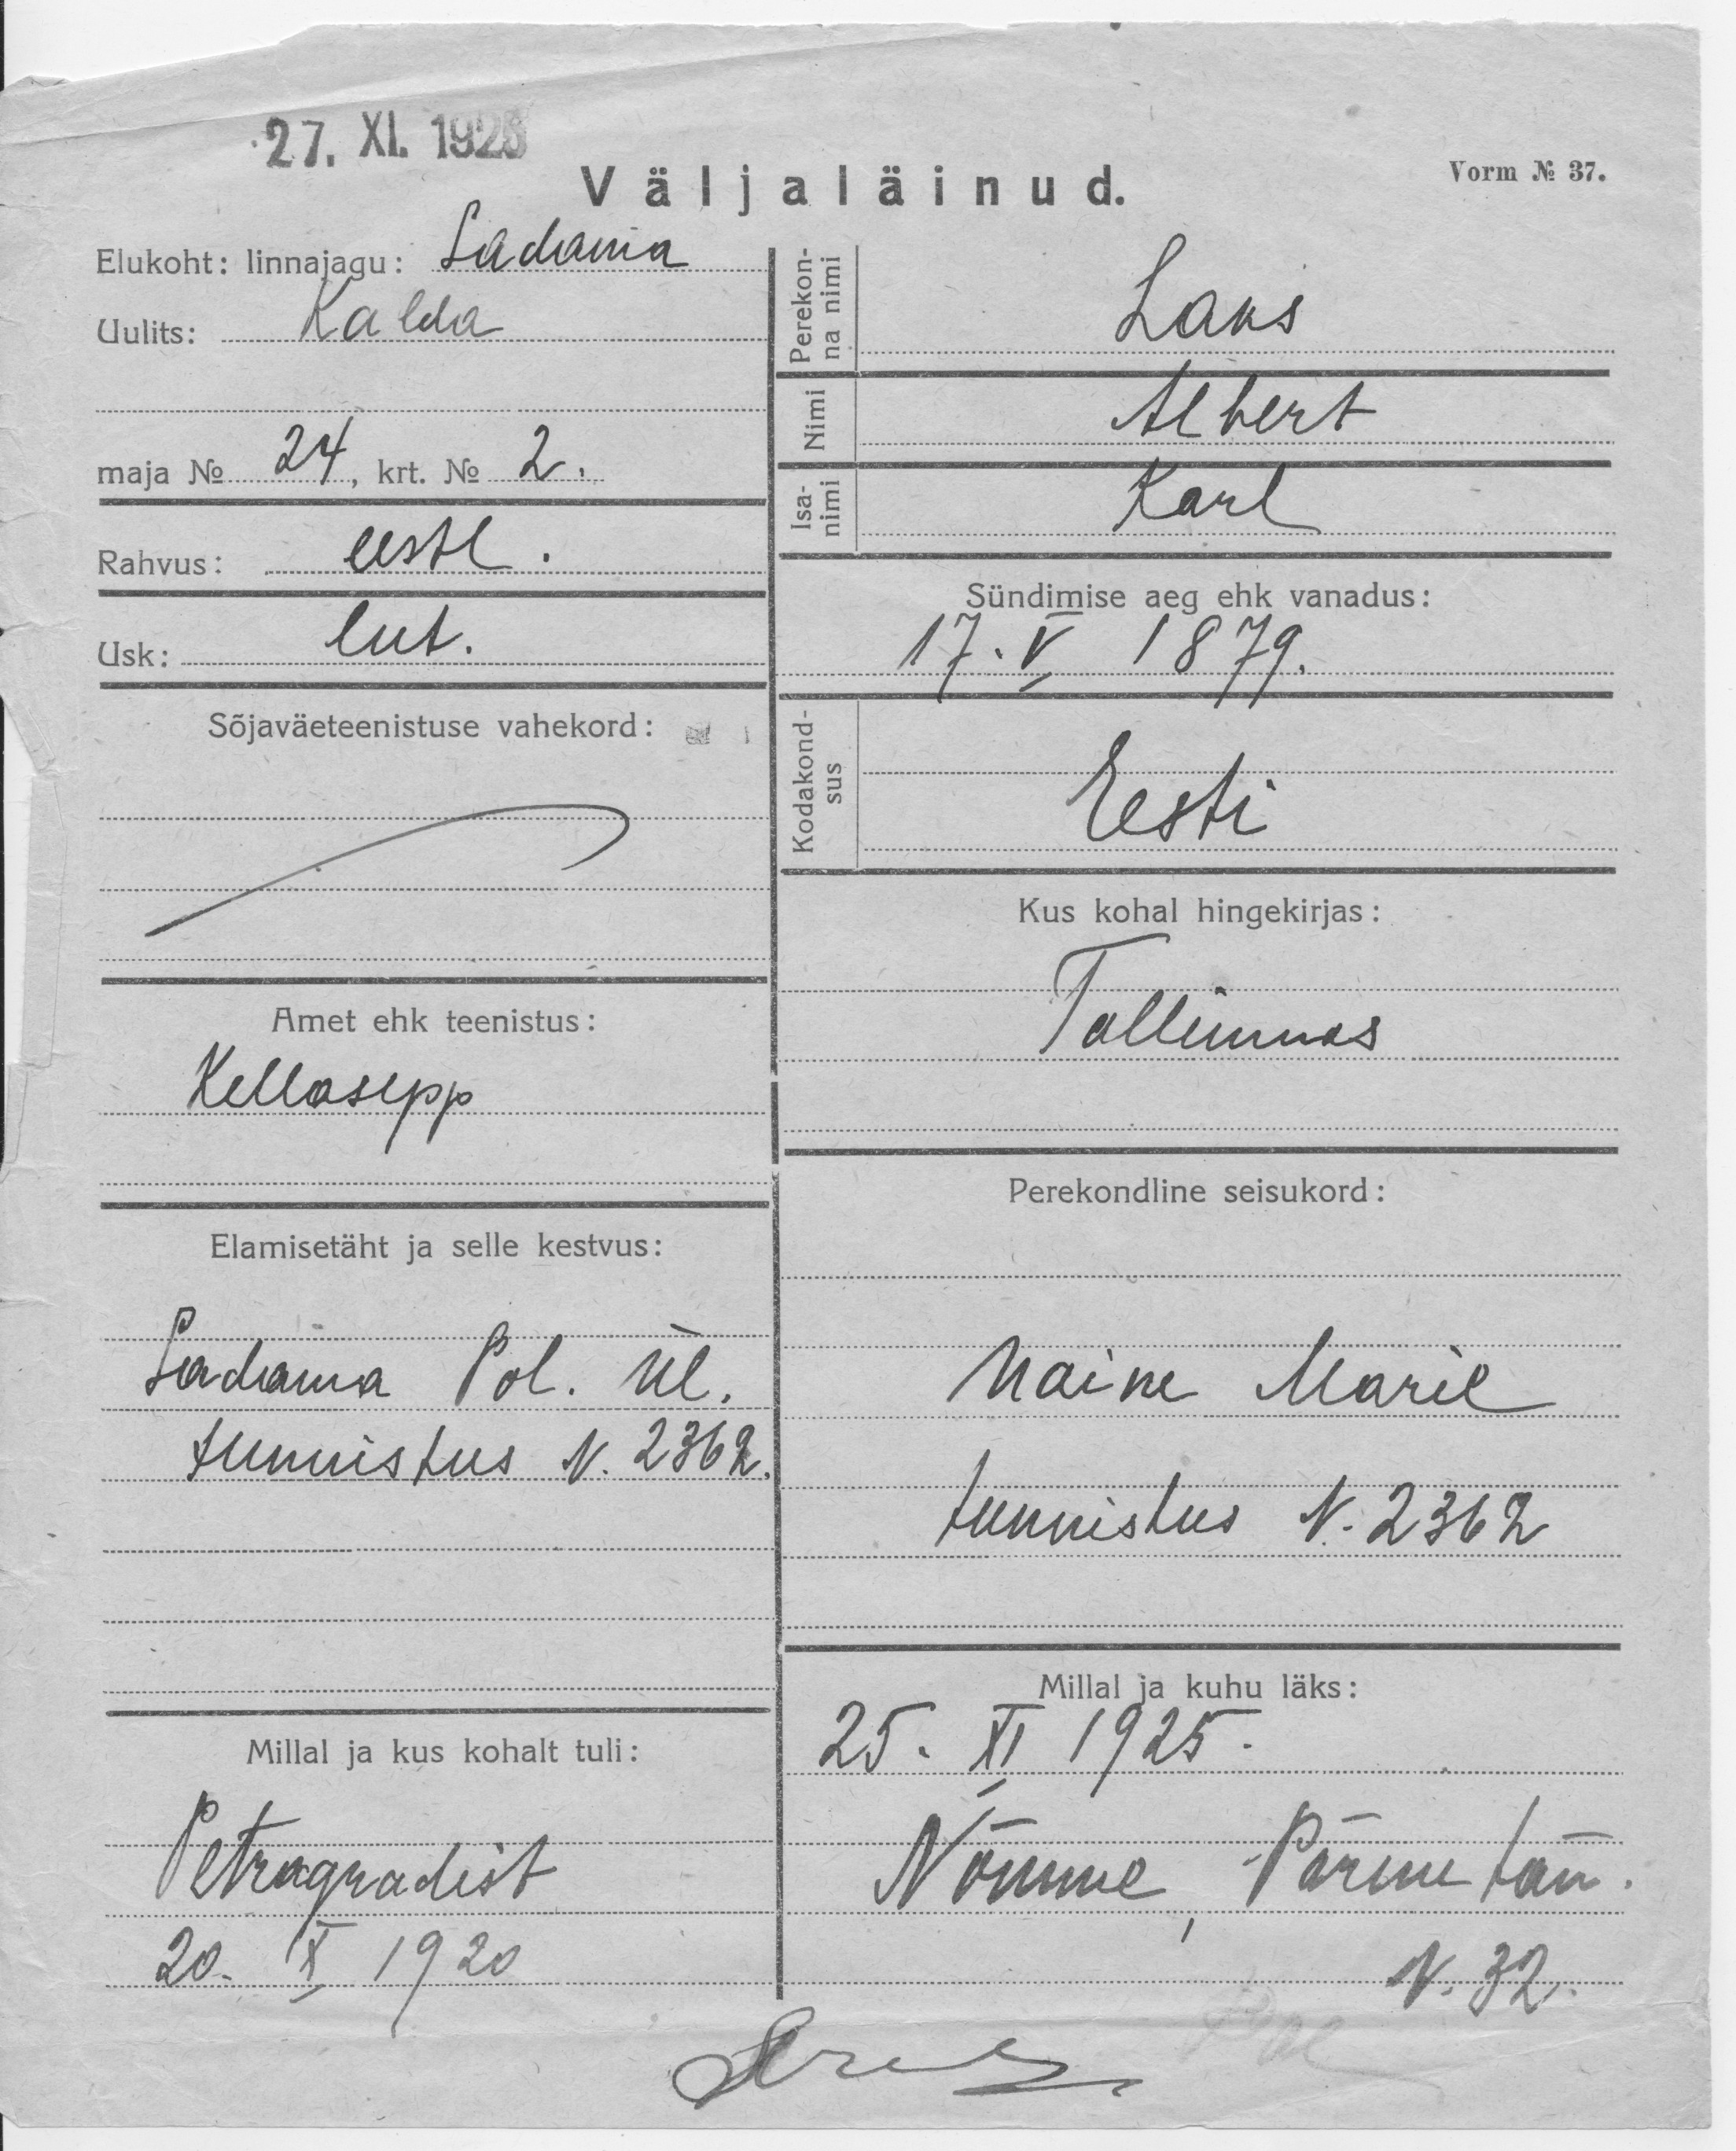 27. XI. 1925
Väljaläinud.
Vorm № 37.
Elukoht: linnajagu: Sadama
Uulits: Kalda
maja № 24, krt. № 2.
Rahvus: eestl.
Usk: lut.
Sõjaväeteenistuse vahekord:
Amet ehk teenistus:
Kellasepp
Elamisetäht ja selle kestvus:
Sadama Pol. ül.
tunnistus N. 2362.
Millal ja kus kohalt tuli:
Petragradist
20. X 1920
Perekon-
na nimi
Laks
Nimi
Albert
Isa-
nimi
Karl
Sündimise aeg ehk vanadus:
17. V 1879.
Kodakond-
sus
Eesti
Kus kohal hingekirjas:
Tallinnas
Perekondline seisukord:
Naine Marie
tunnistus N. 2362
Millal ja kuhu läks:
25. XI 1925.
Nõmme, Pärnu tän.
N. 32.